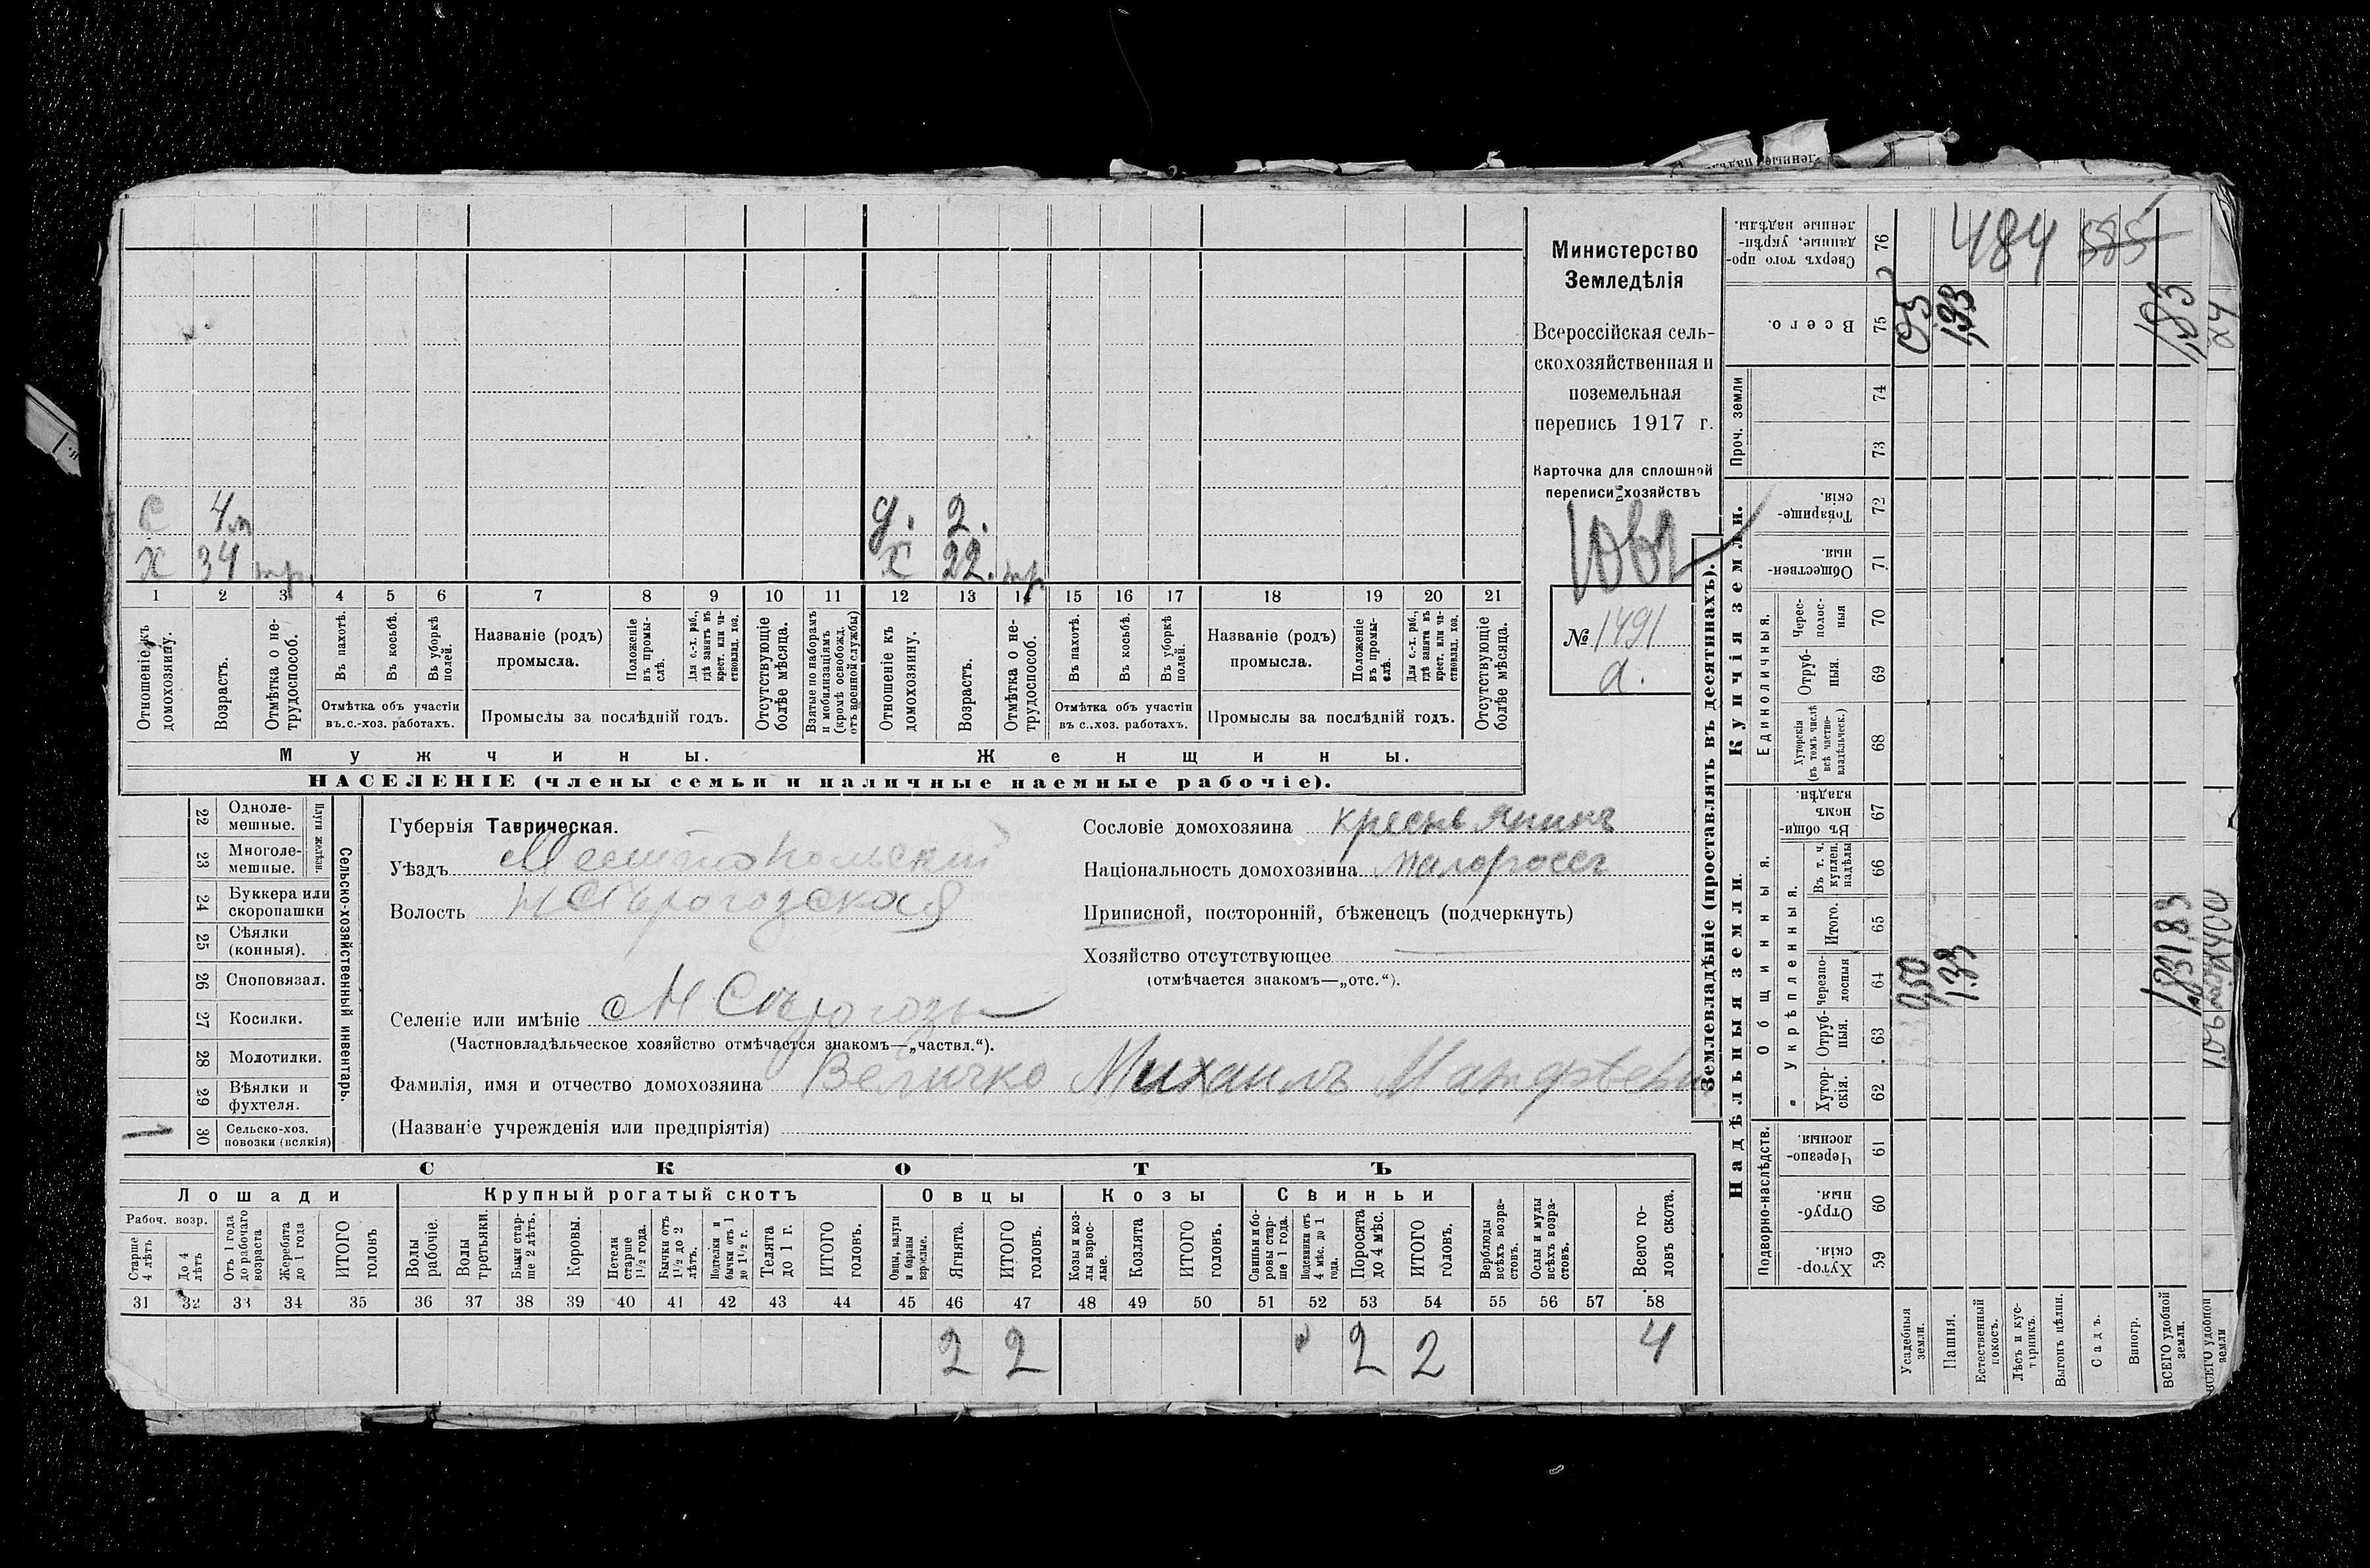 Министерство
Земледѣлія
Всероссійская сель-
скохозяйственная и
поземельная
перепись 1917 г.
Карточка для сплошной
переписи хозяйствъ
№ 1491
а.
С 4 м
Х 34 тр.
д. 2.
Х 22. тр
1 2 3 4 5 6 7 8 9 10 11 12 13 14 15 16 17 18 19 20 21
Отношеніе къ домохозяину.
Возрастъ.
Отмѣтка о не-трудоспособ.
Въ пахотѣ.
Въ косьбѣ.
Въ уборкѣ полей.
Отмѣтка объ участіи
въ.с.-хоз. работахъ.
Названіе (родъ)
промысла.
Положеніе въ промы-слѣ.
Для с.-х. раб., гдѣ занятъ въ крест. или ча-стновлад. хоз.
Промыслы за послѣдній годъ.
Отсутствующіе болѣе мѣсяца.
Взятые по наборамъ и мобилизаціямъ (кромѣ освобожд. отъ военной службы)
Отношеніе къ домохозяину.
Возрастъ.
Отмѣтка о не-трудоспособ.
Въ пахотѣ.
Въ косьбѣ.
Въ уборкѣ полей.
Отмѣтка объ участіи
въ с..хоз. работахъ.
Названіе (родъ)
промысла.
Положеніе въ промы-слѣ.
Для с.-х. раб., гдѣ занята въ крест. или ча-стновлад. хоз.
Промыслы за послѣдній годъ.
Отсутствующіе болѣе мѣсяца.
Мужчины.
Женщины.
НАСЕЛЕНІЕ (члены семьи и наличные наемные рабочіе).
22 Одноле-мешные.
23 Многоле-мешные.
Плуги желѣзн.
24 Буккера или скоропашки
25 Сѣялки (конныя).
26 Сноповязал.
27 Косилки.
28 Молотилки.
29 Вѣялки и фухтеля.
30 Сельско-хоз. повозки (всякія)
1
Сельско-хозяйственный инвентарь.
Губернія Таврическая.
Уѣздъ Мелитопольскій
Волость Н Сѣрогозская
Селеніе или имѣніе с Н Сѣрогозы
(Частновладѣльческое хозяйство отмѣчается знакомъ—„частвл.“).
Фамилія, имя и отчество домохозяина Величко Михаилъ Матфѣевъ
(Названіе учрежденія или предпріятія)
Сословіе домохозяина крестьянинъ
Національность домохозяина малороссъ
Приписной, посторонній, бѣженецъ (подчеркнуть)
Хозяйство отсутствующее
(отмѣчается знакомъ—„отс.“).
СКОТЪ
Лошади
Крупный рогатый скотъ
Овцы
Козы
Свиньи
Рабоч. возр.
Старше 4 лѣтъ
До 4 лѣтъ
Отъ 1 года до рабочаго возраста
Жеребята до 1 года
ИТОГО головъ
Волы рабочіе.
Волы третьяки.
Быки стар-ше 2 лѣтъ.
Коровы.
Нетели старше 1½ года.
Бычки отъ 1½ до 2 лѣтъ.
Подтелки и бычки отъ 1 до 1½ г.
Телята до 1 г.
ИТОГО головъ.
Овцы, валухи и бараны взрослые.
Ягнята.
ИТОГО головъ.
Козы и коз-лы взрос-лые.
Козлята
ИТОГО головъ.
Свиньи и бо-ровы стар-ше 1 года.
Подсвинки отъ 4 мѣс. до 1 года.
Поросята до 4 мѣс.
ИТОГО головъ.
Верблюды всѣхъ возра-стовъ.
Ослы и мулы всѣхъ возра-стовъ.
Всего го-ловъ скота.
31 32 33 34 35 36 37 38 39 40 41 42 43 44 45 46 47 48 49 50 51 52 53 54 55 56 57 58
2 2 2 2 4
Землевладѣніе (проставлять въ десятинахъ).
Надѣльныя земли.
Купчія земли.
Проч. земли
Подворно-наслѣдств.
Общинныя.
Укрѣпленныя.
Единоличныя.
Хутор-скія. 59
Отруб-ныя. 60
Черезпо-лосныя. 61
Хутор-скія. 62
Отруб-ныя. 63
Черезпо-лосныя 64
Итого. 65
Въ т. ч. куплен. надѣлы 66
Въ общи-номъ владѣн. 67
Хуторскія (въ томъ числѣ всѣ частно-владѣльческ.) 68
Отруб-ныя. 69
Черес-полос-ныя 70
Обществен-ныя. 71
Товарище-скія. 72
73
74
Всего. 75
Сверхъ того про-данные, укрѣп-ленные надѣлы. 76
484 585
Усадебныя земли.
Пашня.
Естественный покосъ.
Лѣсъ и кус-тарникъ.
Выгонъ цѣлин.
Садъ.
Виногр.
ВСЕГО удобной земли.
0,50
1.33
1,83
1,33
1,83
ВСЕГО удобной земли